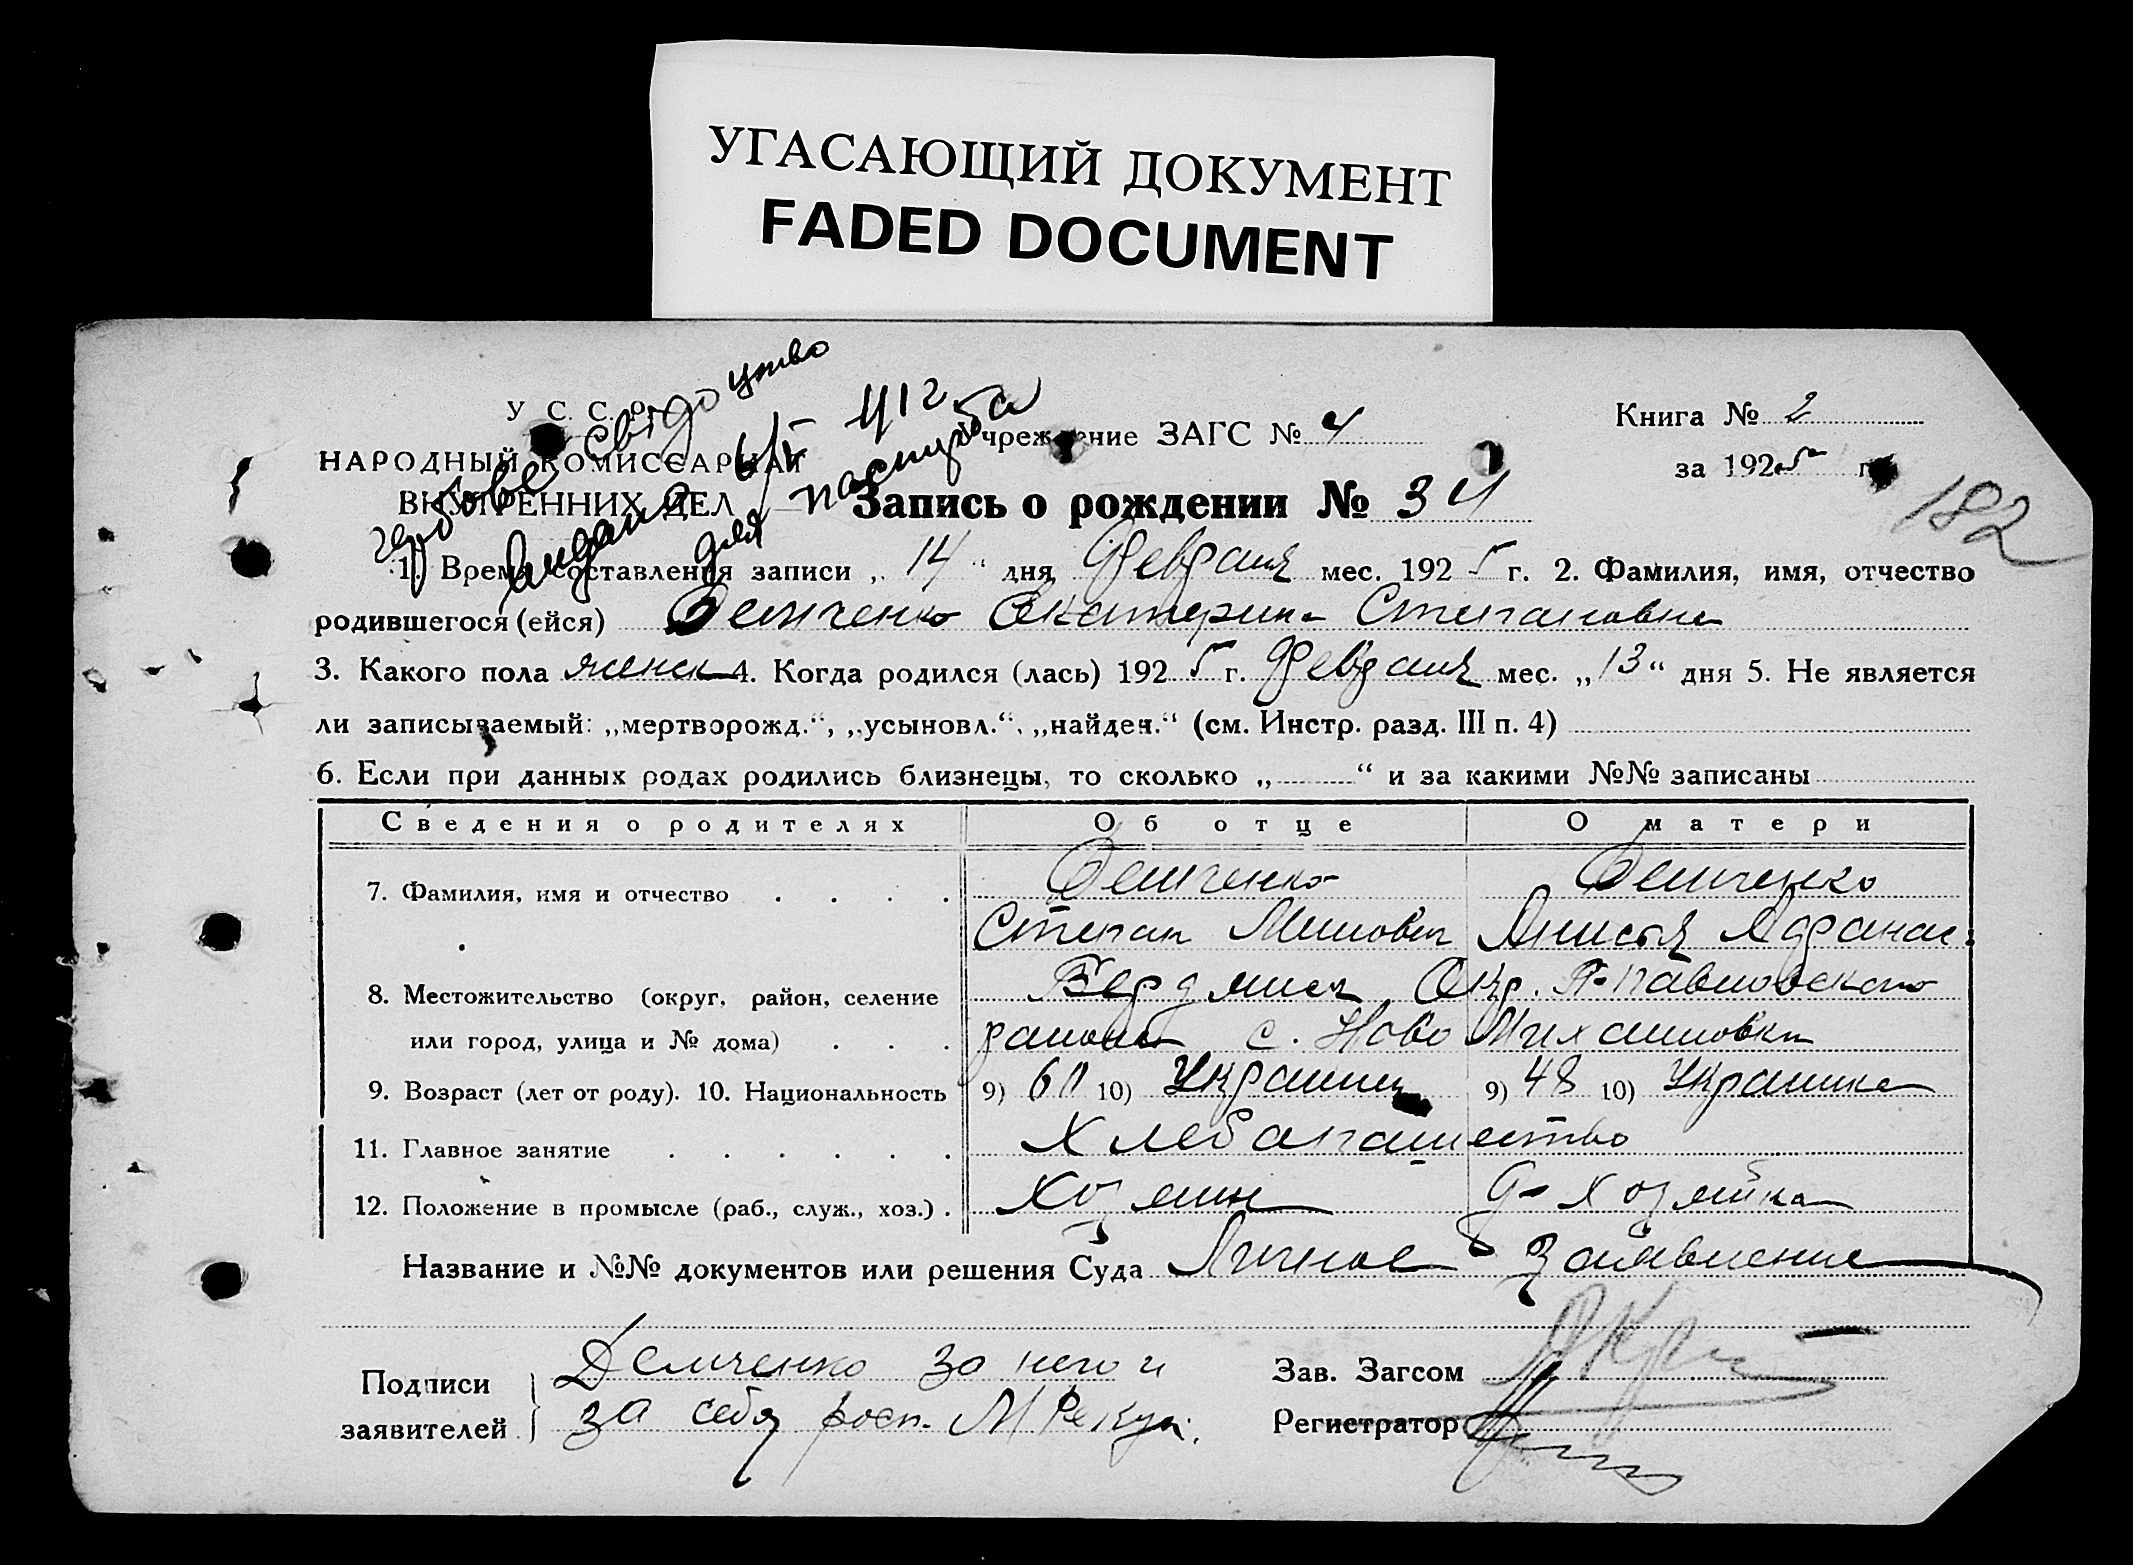 УГАСАЮЩИЙ ДОКУМЕНТ
FADED DOCUMENT
У С. С. Р.
НАРОДНЫЙ КОМИССАРИАТ
ВНУТРЕННИХ ДЕЛ
свідоцтво
для паспорта
Учреждение ЗАГС № 4
Книга № 2
за 1925 г.
182
Запись о рождении № 34
1. Время составления записи „ 14 “ дня Февраля мес. 1925 г. 2. Фамилия, имя, отчество
родившегося (ейся) Демченко Екатерина Степановна
3. Какого пола женск 4. Когда родился (лась) 1925 г. Февраля мес. „13“ дня 5. Не является
ли записываемый: „мертворожд.“, „усыновл.“, „найден.“ (см. Инстр. разд. III п. 4)
6. Если при данных родах родились близнецы, то сколько „ “ и за какими №№ записаны
Сведения о родителях Об отце О матери
7. Фамилия, имя и отчество . . . . Демченко Демченко
Степан Анисья Афанас.
8. Местожительство (округ, район, селение Бердянск. Окр. Павловского
или город, улица и № дома) . . . района с. Ново Михайловки
9. Возраст (лет от роду). 10. Национальность 9) 60 10) Украинец 9) 48 10) Украинка
11. Главное занятие . . . . . . Хлебопашество
12. Положение в промысле (раб., служ., хоз.) . хозяин д-хозяйка
Название и №№ документов или решения Суда Личное заявление
Подписи
заявителей
Демченко за него и
за себя росп.
Зав. Загсом
Регистратор